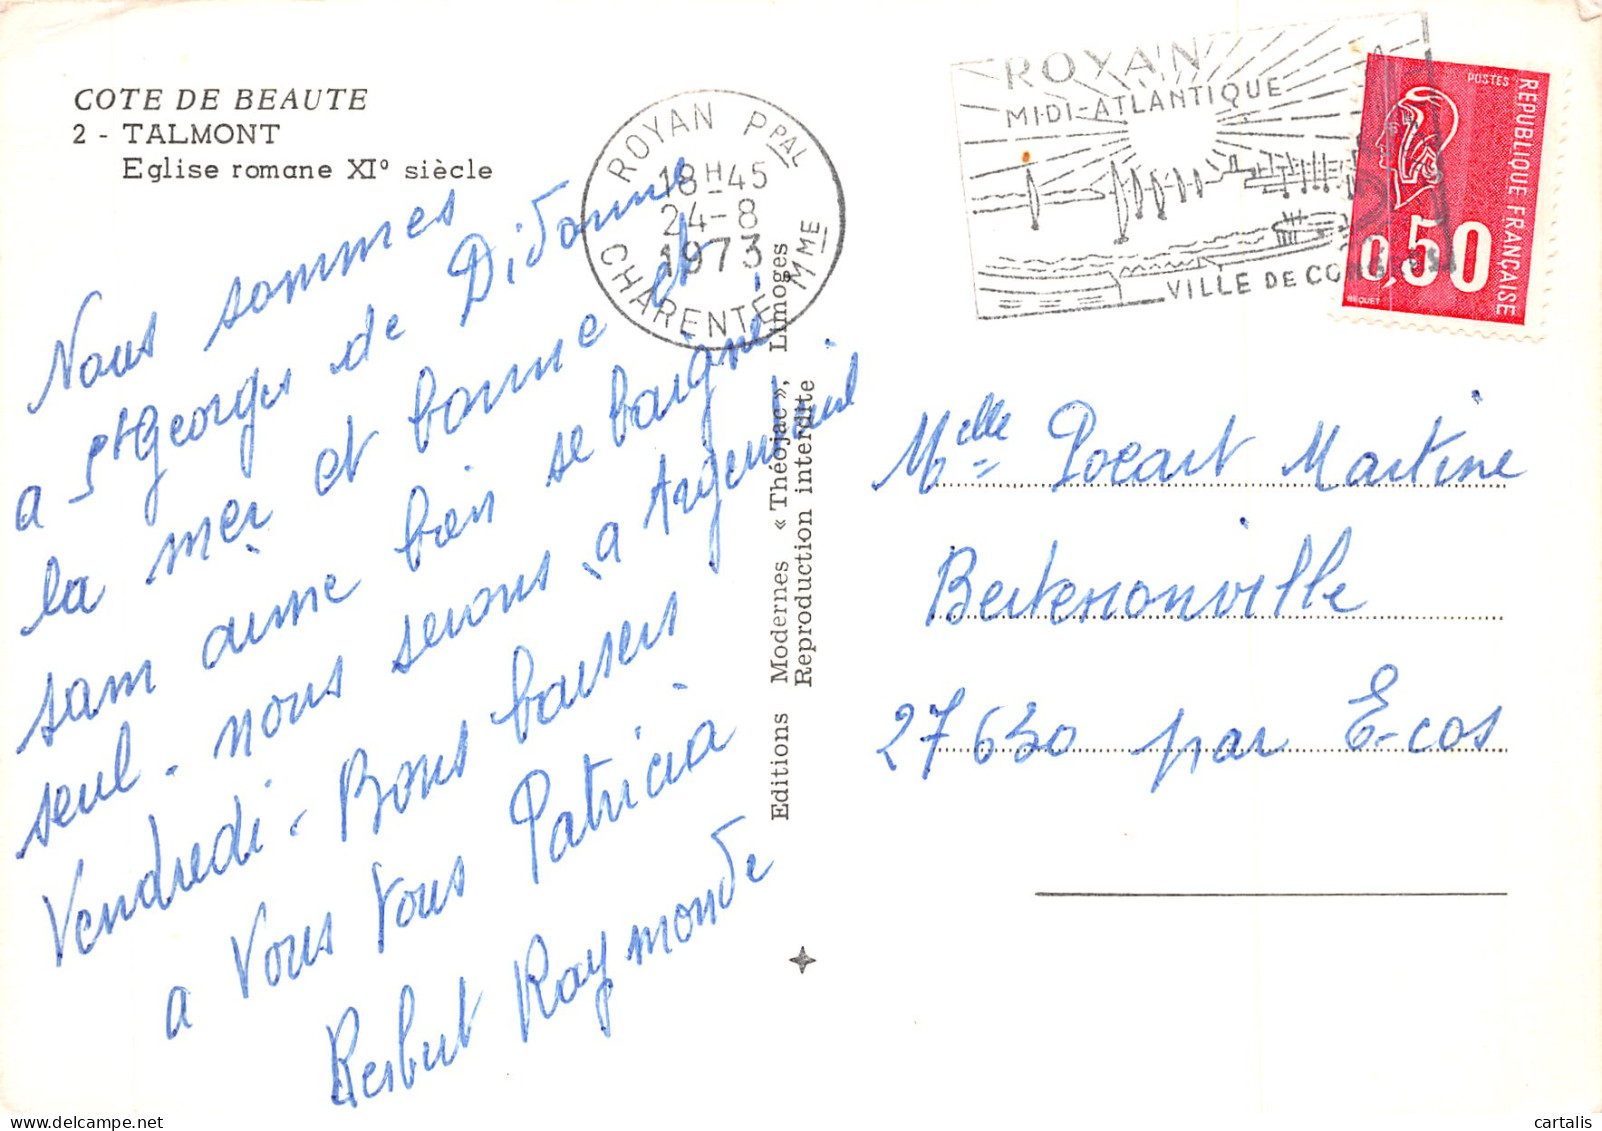 COTE DE BEAUTE
2 - TALMONT
Eglise romane XI° siècle
Nous sommes
a St Georges de Didonne
la mer et bonne et
sam aime bien se baigné
seul. nous serons a Argenteuil
Vendredi. Bons baisers
a Vous Tous Patricia
Raymonde
Editions Modernes « Théojac », Limoges
Reproduction interdite
ROYAN PPAL
18H45
24-8
1973
CHARENTE MME
ROYAN
MIDI-ATLANTIQUE
VILLE DE CONGRES
POSTES
REPUBLIQUE FRANÇAISE
0,50
BEQUET
Melle Pocart Martine
Bertenonville
27630 par E-cos
cartalis